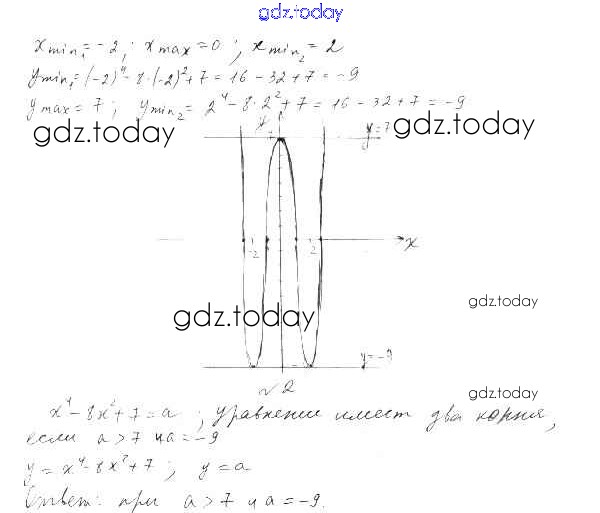 gdz.today
x min₁ = -2; x max = 0; x min₂ = 2
y min₁ = (-2)⁴ - 8·(-2)² + 7 = 16 - 32 + 7 = -9
y max = 7; y min₂ = 2⁴ - 8·2² + 7 = 16 - 32 + 7 = -9
gdz.today
y
y = 7
gdz.today
7
-2
2
x
gdz.today
gdz.today
y = -9
№2
gdz.today
x⁴ - 8x² + 7 = a; уравнение имеет два корня,
если a > 7 и a = -9
y = x⁴ - 8x² + 7; y = a
Ответ: при a > 7 и a = -9.